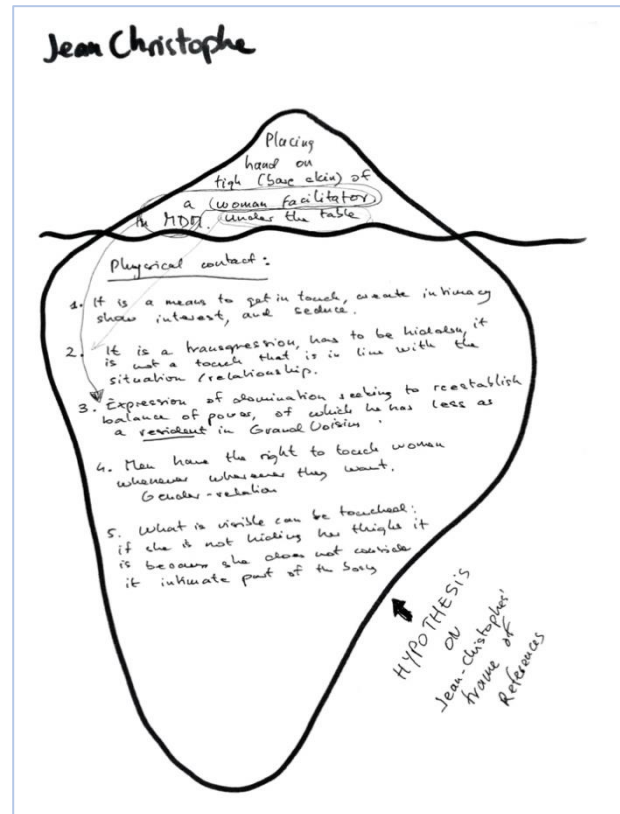 Jean Christophe
Placing
hand on
tigh (bare skin) of
a (woman facilitator)
in MDM. under the table
Physical contact :
1. It is a means to get in touch, create intimacy
show interest, and seduce.
2. It is a transgression, has to be hidden, it
is not a touch that is in line with the
situation / relationship.
3. Expression of domination seeking to reestablish
balance of power, of which he has less as
a resident in Grand Voisins.
4. Men have the right to touch woman
whenever wherever they want.
Gender-relation
5. What is visible can be touched:
if she is not hiding her thighs it
is because she does not consider
it intimate part of the body
HYPOTHESIS
ON
Jean-Christophes'
frame of
References